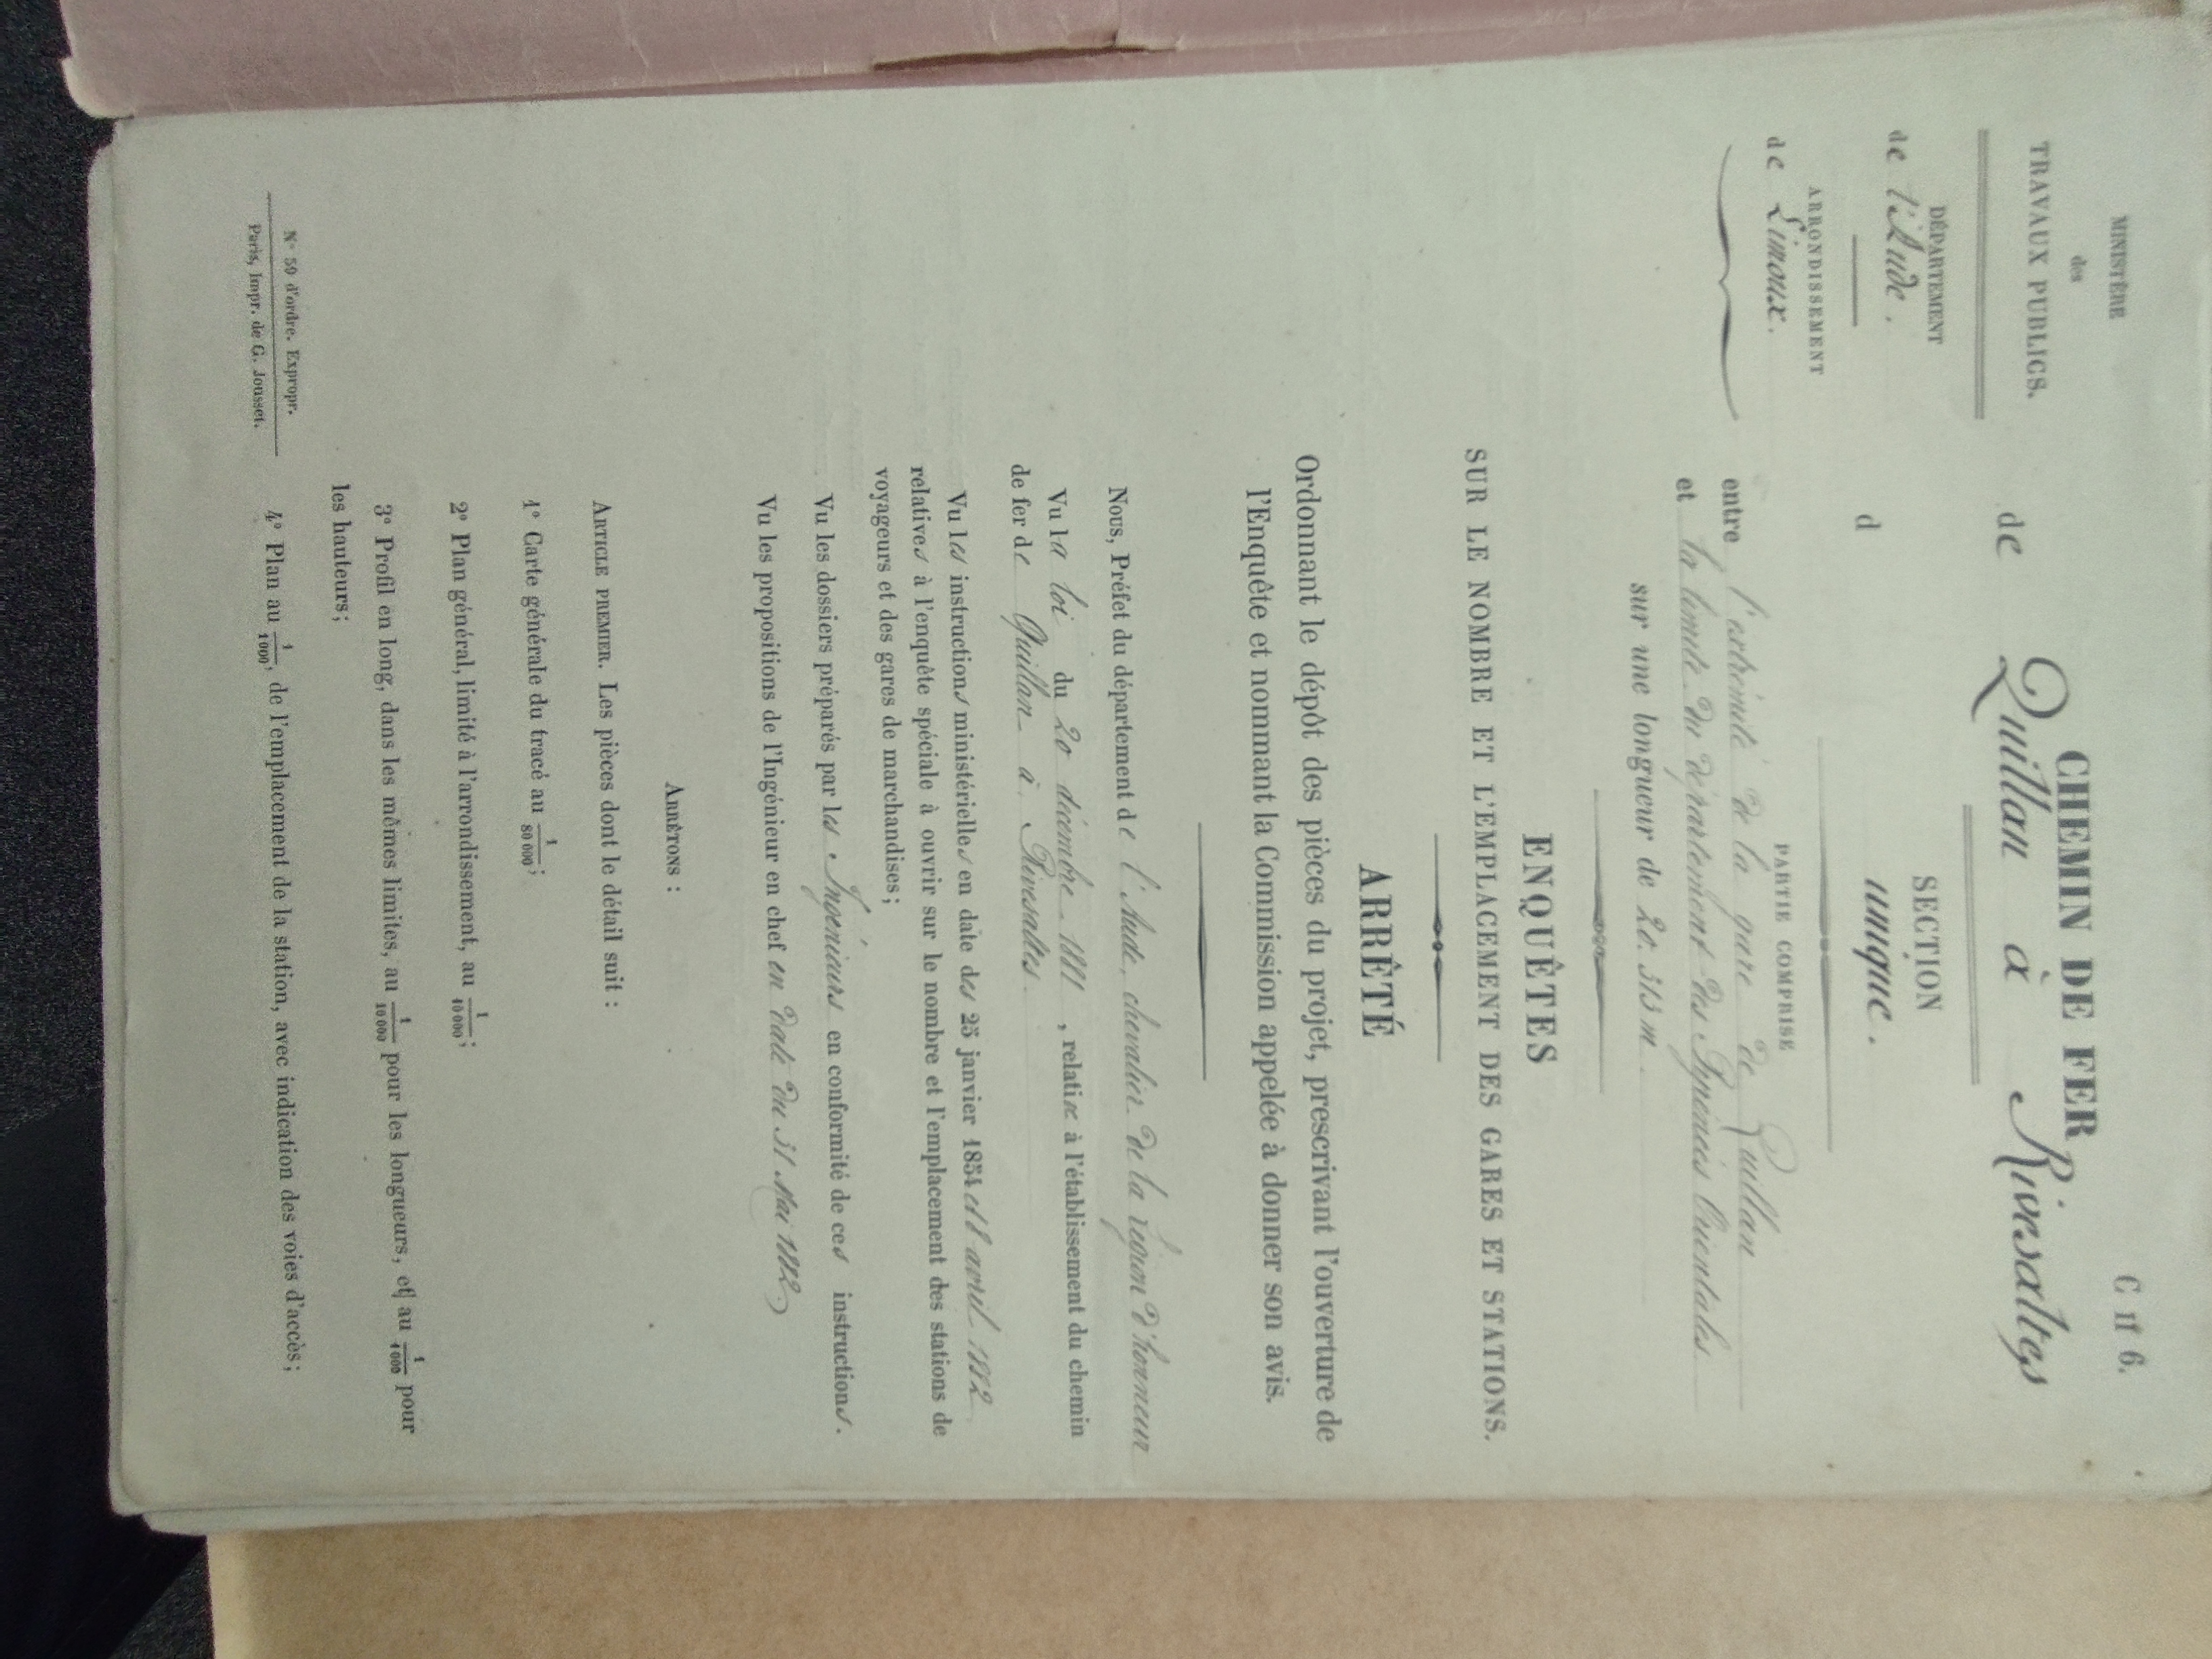 C II 6.
MINISTÈRE
des
TRAVAUX PUBLICS.
DÉPARTEMENT
de l'Aude.
ARRONDISSEMENT
de Limoux.
CHEMIN DE FER
de Quillan à Rivesaltes
SECTION
d unique.
PARTIE COMPRISE
entre l'extrémité de la gare de Quillan
et la limite du département des Pyrénées Orientales
sur une longueur de 20.313 m.
ENQUÊTES
SUR LE NOMBRE ET L'EMPLACEMENT DES GARES ET STATIONS.
ARRÊTÉ
Ordonnant le dépôt des pièces du projet, prescrivant l'ouverture de
l'Enquête et nommant la Commission appelée à donner son avis.
Nous, Préfet du département de l'Aude, chevalier de la Légion d'honneur
Vu la loi du 20 décembre 1881, relative à l'établissement du chemin
de fer de Quillan à Rivesaltes.
Vu les instructions ministérielles en date des 25 janvier 1854 et 8 avril 1882
relatives à l'enquête spéciale à ouvrir sur le nombre et l'emplacement des stations de
voyageurs et des gares de marchandises;
Vu les dossiers préparés par les Ingénieurs en conformité de ces instructions.
Vu les propositions de l'Ingénieur en chef en date du 31 Mai 1882,
ARRÊTONS :
ARTICLE PREMIER. Les pièces dont le détail suit :
1° Carte générale du tracé au 1/80 000;
2° Plan général, limité à l'arrondissement, au 1/10 000;
3° Profil en long, dans les mêmes limites, au 1/10 000 pour les longueurs, et au 1/1 000 pour
les hauteurs;
4° Plan au 1/1 000, de l'emplacement de la station, avec indication des voies d'accès;
N° 59 d'ordre. Expropr.
Paris, Impr. de G. Jousset.